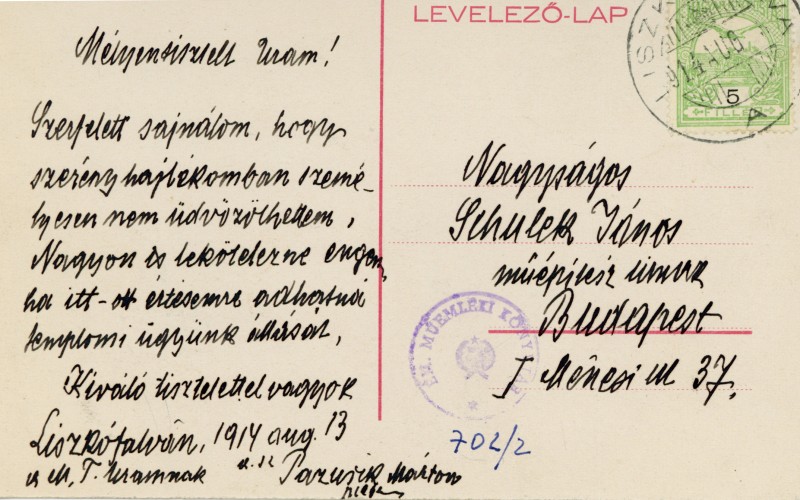 LEVELEZŐ-LAP
5
FILLÉR
914 AUG
Mélyentisztelt Uram!
Szerfelett sajnálom, hogy
szerény hajlékomban szemé-
lyesen nem üdvözölhettem,
Nagyon is lekötelezne engem,
ha itt-ott értésemre adhatná
templomi ügyünk állását,
Kiváló tisztelettel vagyok
Liszkófalván, 1914 aug. 13
a M, T. Uramnak
Márton
Nagyságos
Schulek János
műépítész úrnak
Budapest
I Ménesi út 37.
ÉM. MŰEMLÉKI KÖNYVTÁR
702/2